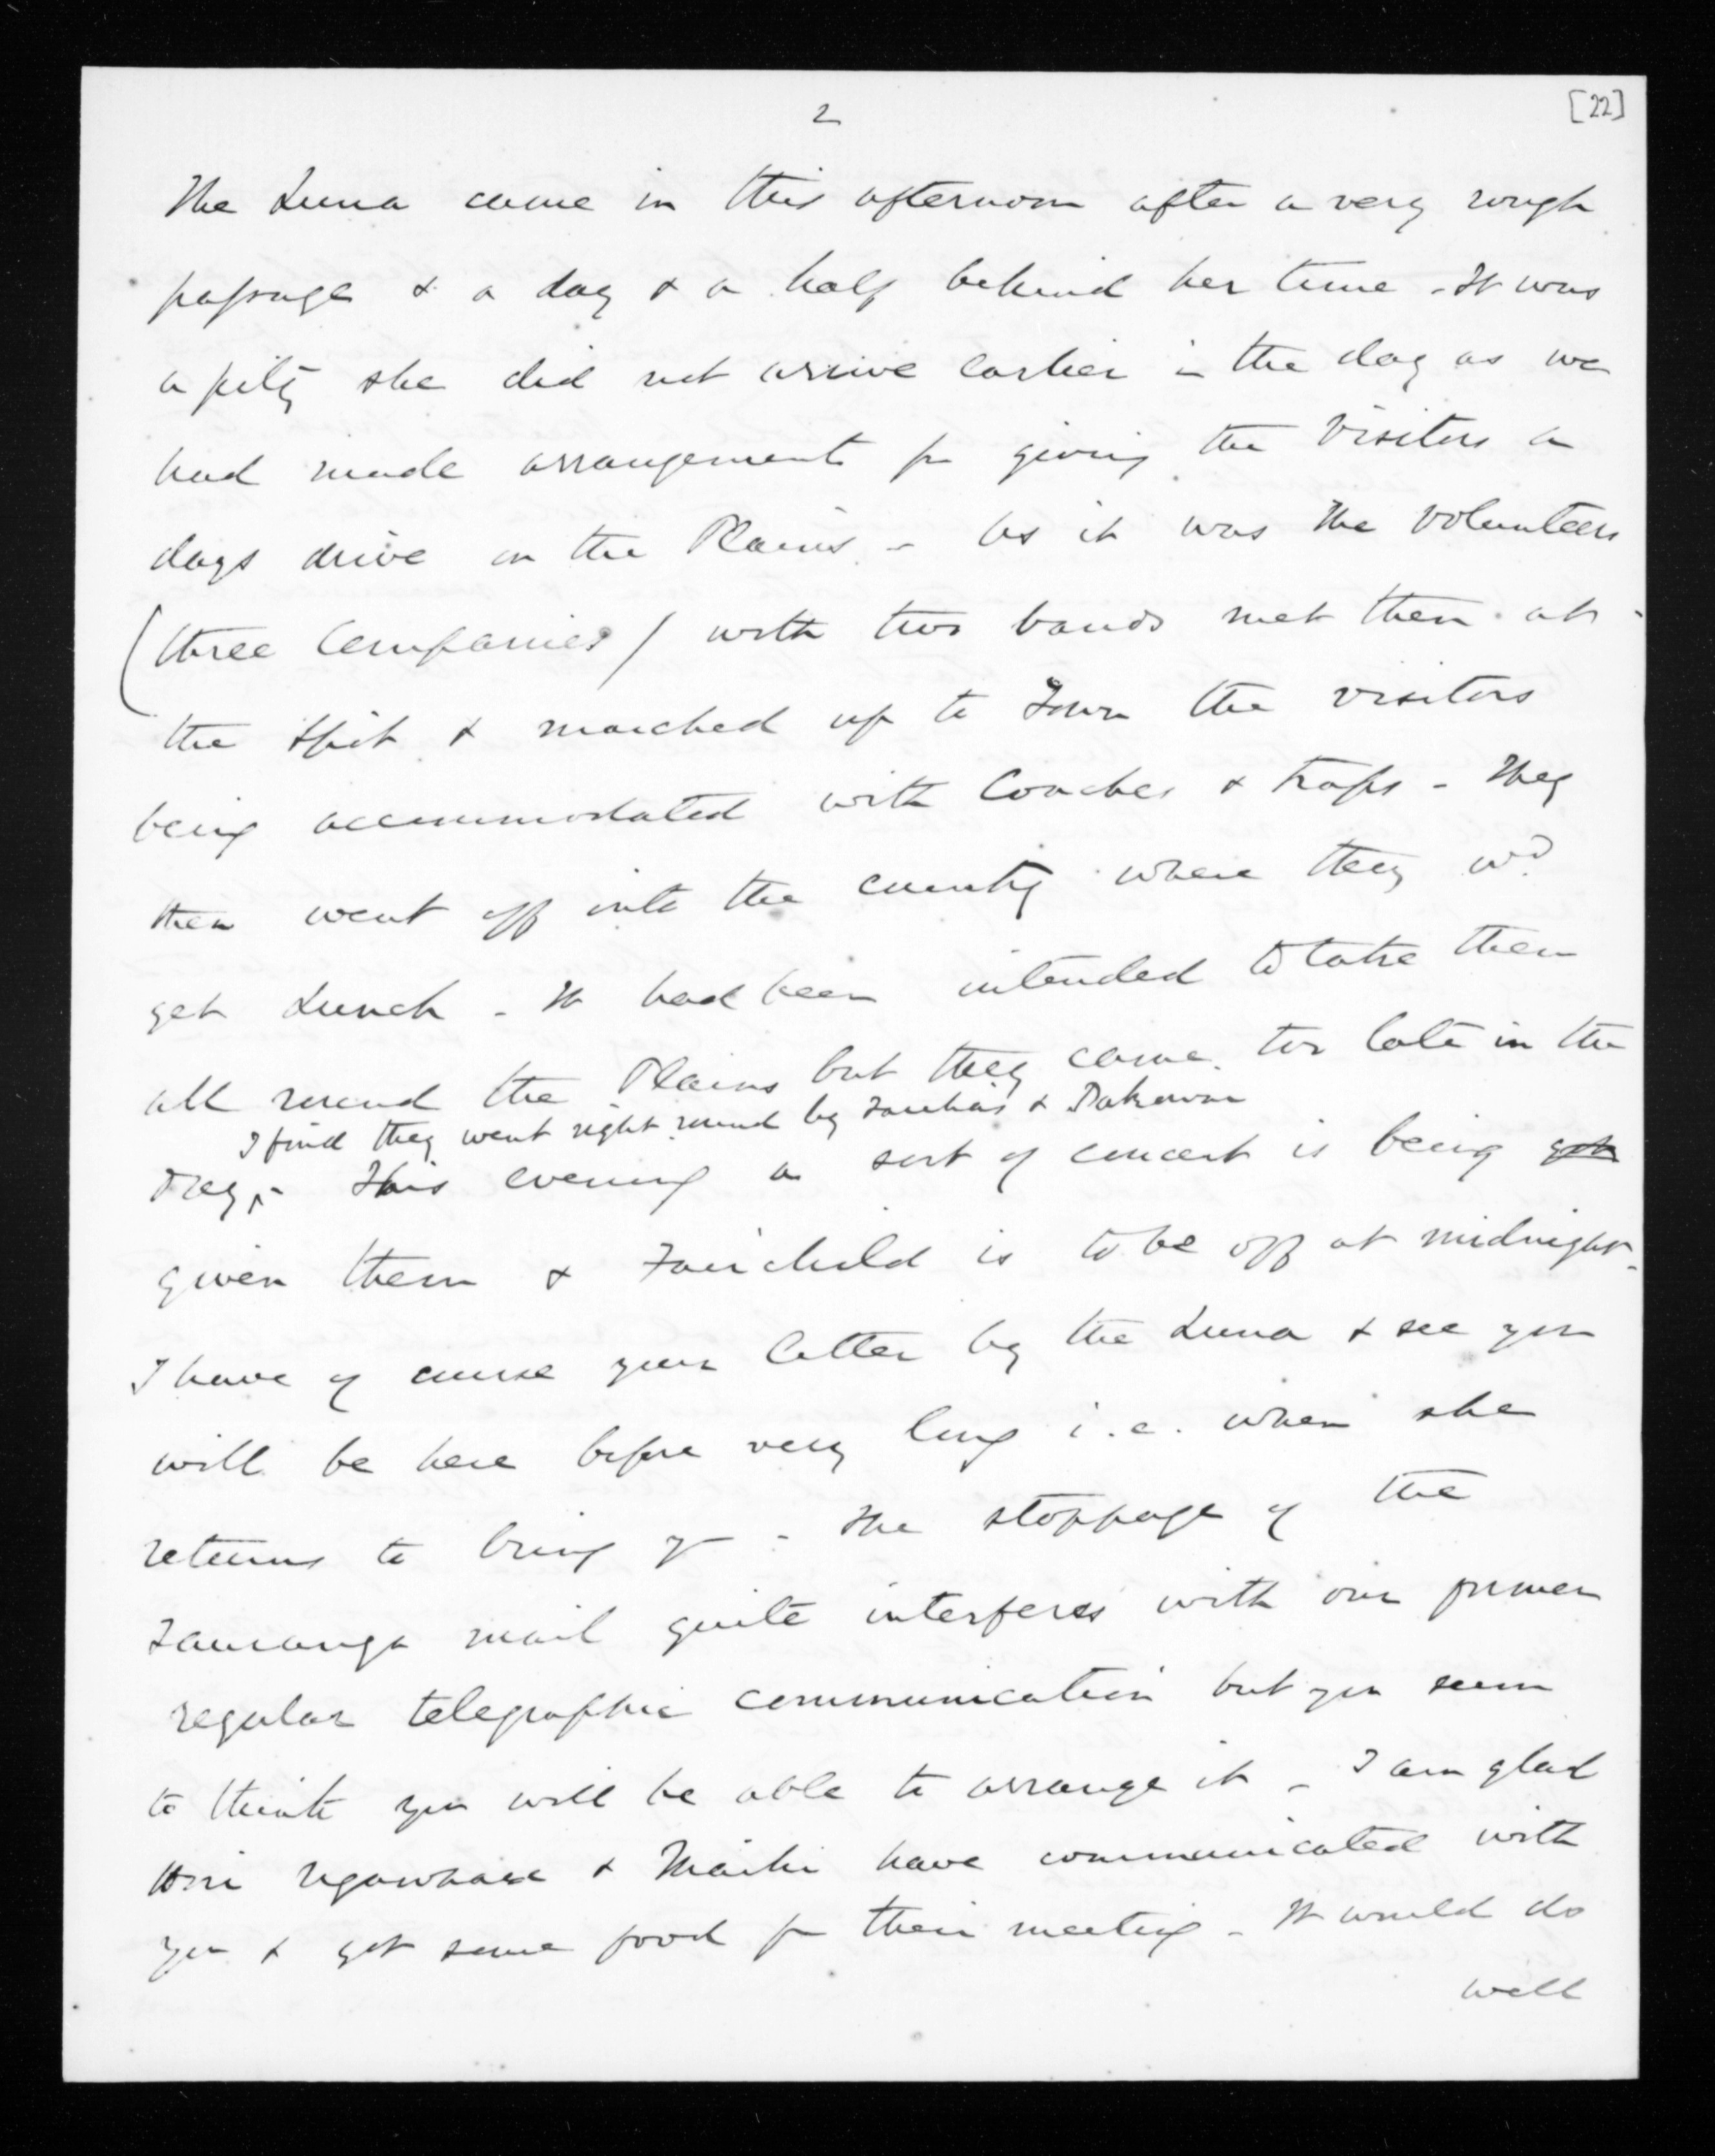 2
[22]
The Luna came in this afternoon after a very rough
passage & a day & a half behind her time - It was
a pity she did not arrive earlier in the day as we
had made arrangements for giving the Visitors a
days drive in the Plains - As it was the Volunteers
(three Companies) with two bands met them at
the Spit & marched up to Town the visitors
being accommodated with Coaches & traps - They
then went off into the country where they wd
get Lunch - It had been intended to take them
all round the Plains but they came too late in the
I find they went right round by & Pakowai
Day - This evening a sort of concert is being got
given them & Fairchild is to be off at midnight -
I have of course your letter by the Luna & see you
will be here before very long i.e. when she
returns to bring you - The stoppage of the
Tauranga mail quite interferes with our former
regular telegraphic communication but you seem
to think you will be able to arrange it - I am glad
& Maihi have communicated with
you & got some food for their meeting - It would do
well